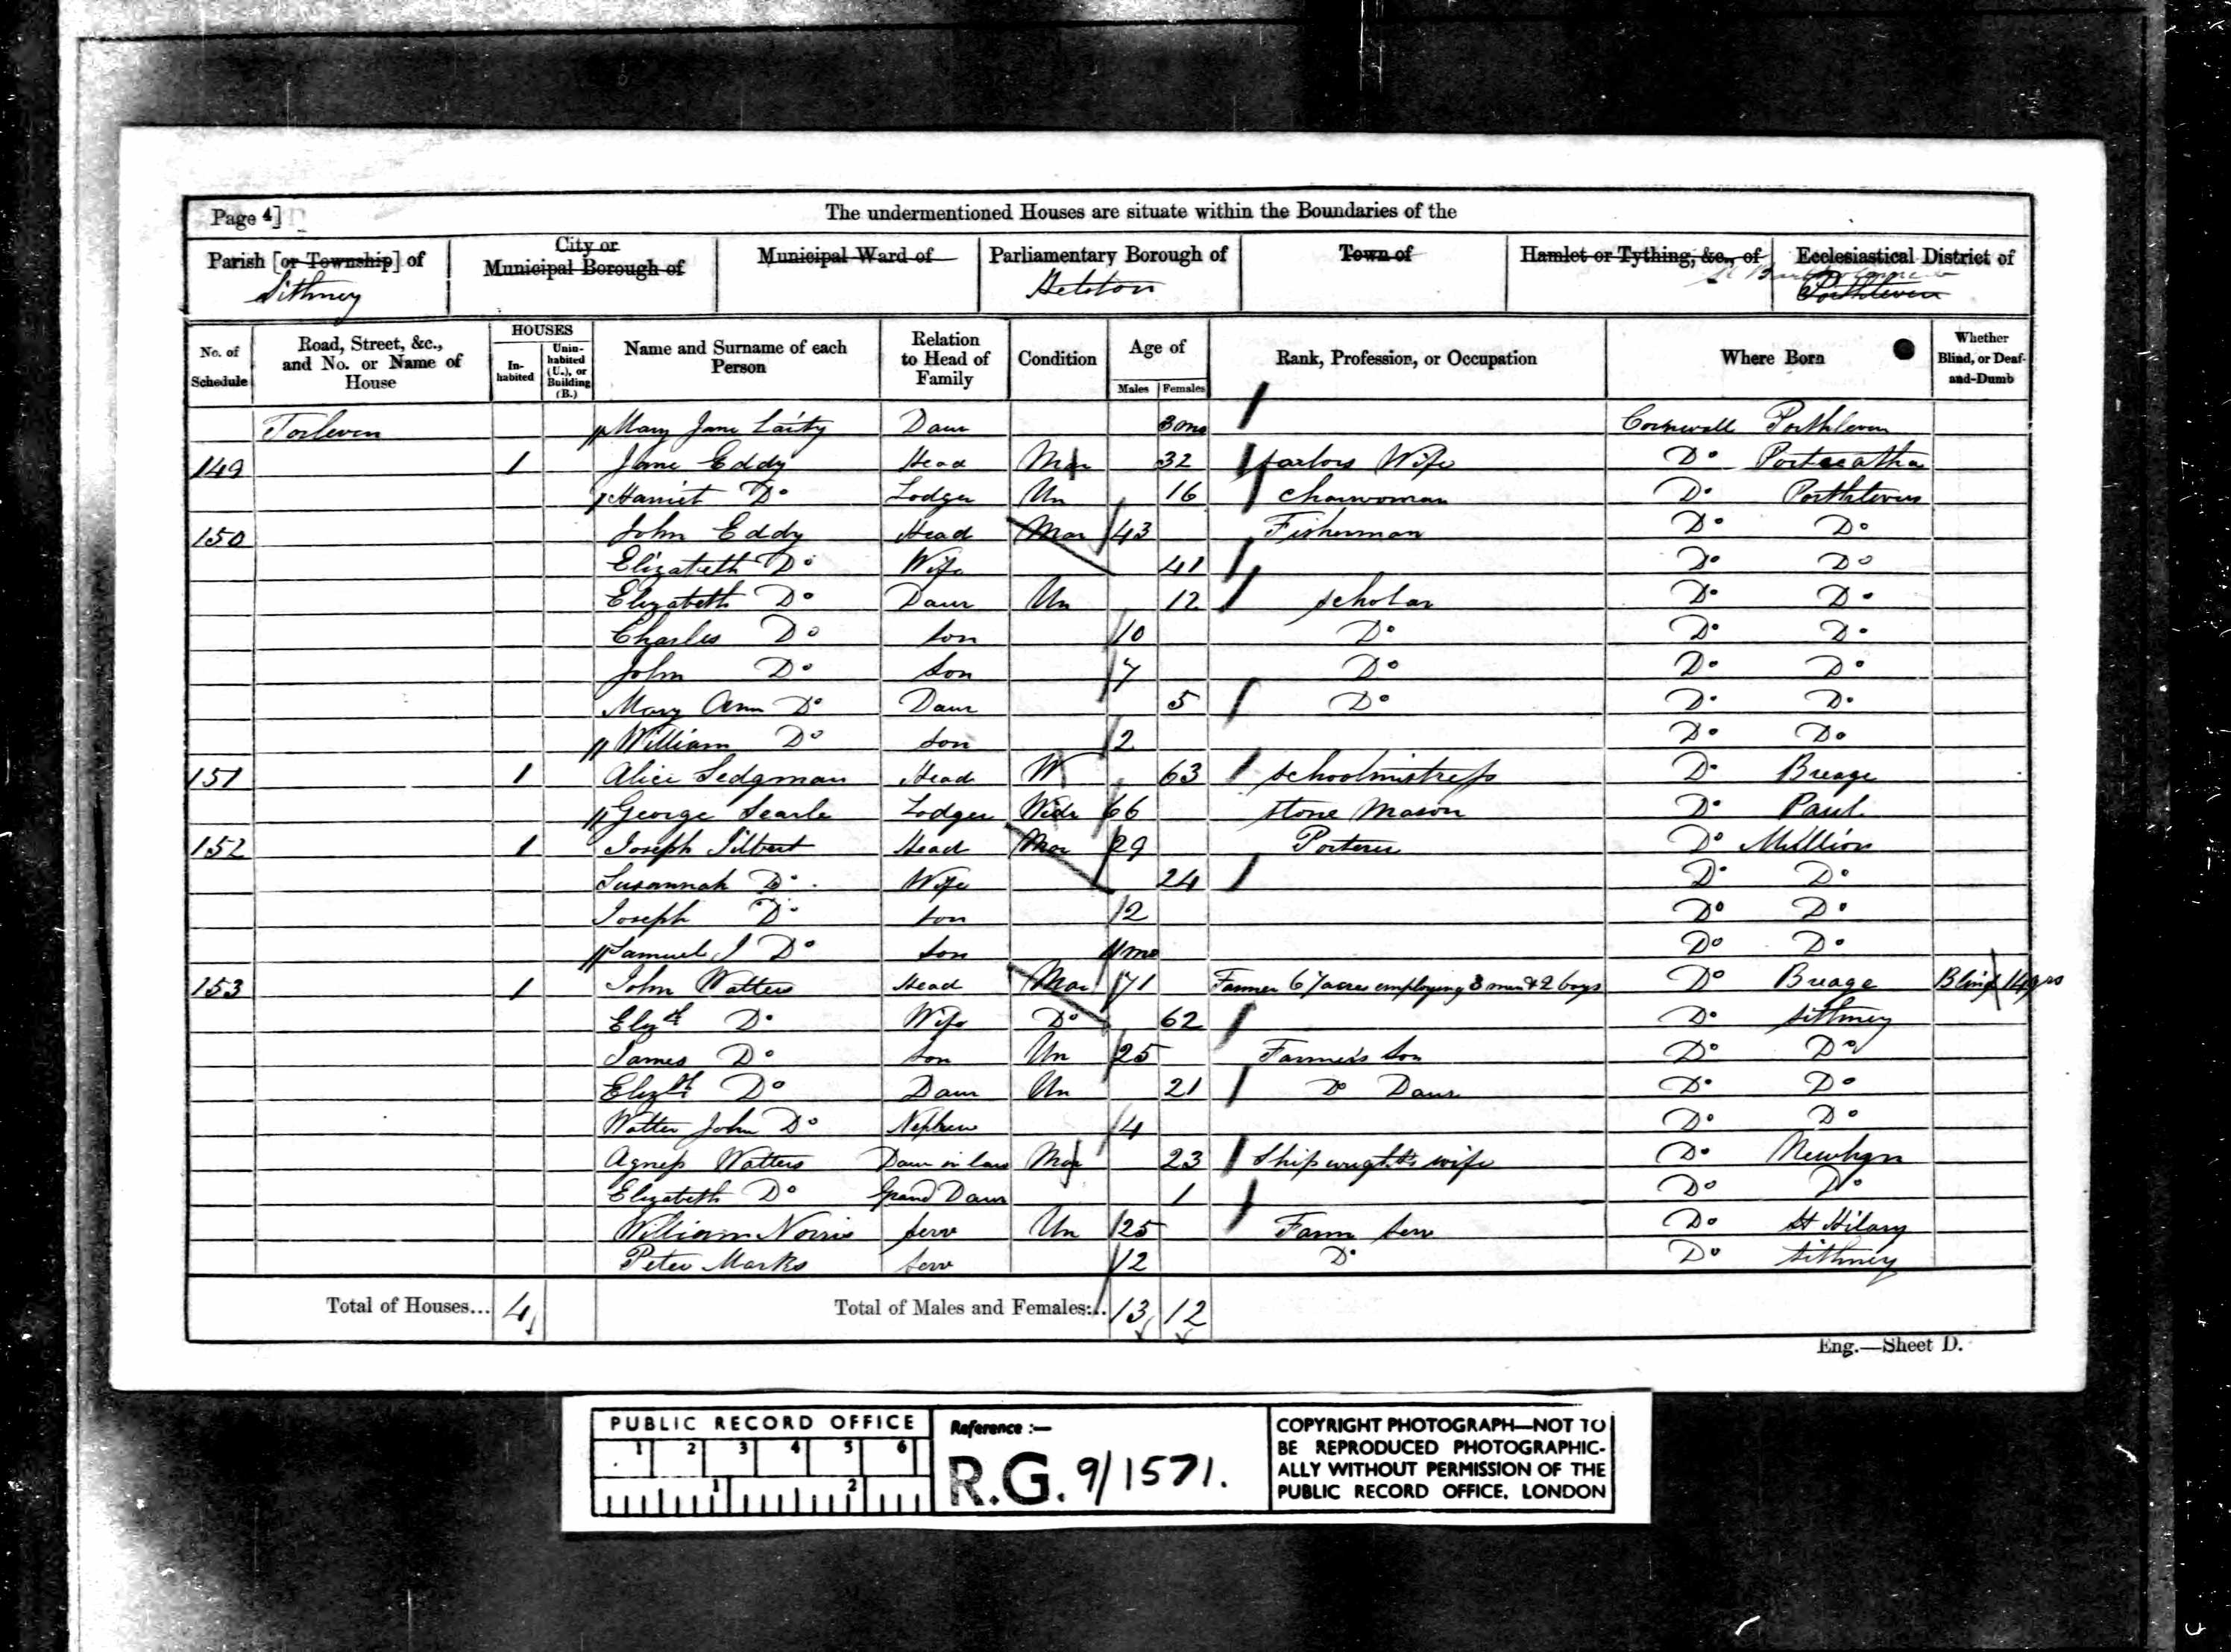 Page 4]
The undermentioned Houses are situate within the Boundaries of the
Parish [or Township] of City or Municipal Borough of Municipal Ward of Parliamentary Borough of Town of Hamlet or Tything, &c., of Ecclesiastical District of
Sithney Helston Porthleven
No. of Schedule Road, Street, &c., and No. or Name of House HOUSES Inhabited Uninhabited (U.), or Building (B.) Name and Surname of each Person Relation to Head of Family Condition Age of Males Females Rank, Profession, or Occupation Where Born Whether Blind, or Deaf-and-Dumb
Torleven Mary Jane Laity Daur 3 mo Cornwall Porthleven
149 1 Jane Eddy Head Mar 32 Sailors Wife Do Portscatha
Harriet Do Lodger Un 16 Charwoman Do Porthleven
150 John Eddy Head Mar 43 Fisherman Do Do
Elizabeth Do Wife 41 Do Do
Elizabeth Do Daur Un 12 Scholar Do Do
Charles Do Son 10 Do Do Do
John Do Son 7 Do Do Do
Mary Ann Do Daur 5 Do Do Do
William Do Son 2 Do Do
151 1 Alice Sedgman Head W 63 Schoolmistress Do Breage
George Searle Lodger Widr 66 Stone Mason Do Paul
152 1 Joseph Head Mar 29 Do Mullion
Susannah Do Wife 24 Do Do
Joseph Do Son 2 Do Do
Samuel J Do Son mo Do Do
153 1 John Watters Head Mar 71 Farmer 67 acres employing 3 men & 2 boys Do Breage Blind 14 yrs
Elizth Do Wife Do 62 Do Sithney
James Do Son Un 25 Farmer's Son Do Do
Elizth Do Daur Un 21 Do Daur Do Do
Walter John Do Nephew 4 Do Do
Agness Watters Daur in law Mar 23 Shipwright's wife Do Newlyn
Elizabeth Do Grand Daur 1 Do Do
William Norris Serv Un 25 Farm Serv Do St Hilary
Peter Marks Serv 12 Do Do Sithney
Total of Houses... 4 Total of Males and Females... 13 12
Eng.—Sheet D.
PUBLIC RECORD OFFICE
1 2 3 4 5 6
1 2
Reference :—
R.G. 9/1571.
COPYRIGHT PHOTOGRAPH—NOT TO
BE REPRODUCED PHOTOGRAPHIC-
ALLY WITHOUT PERMISSION OF THE
PUBLIC RECORD OFFICE, LONDON